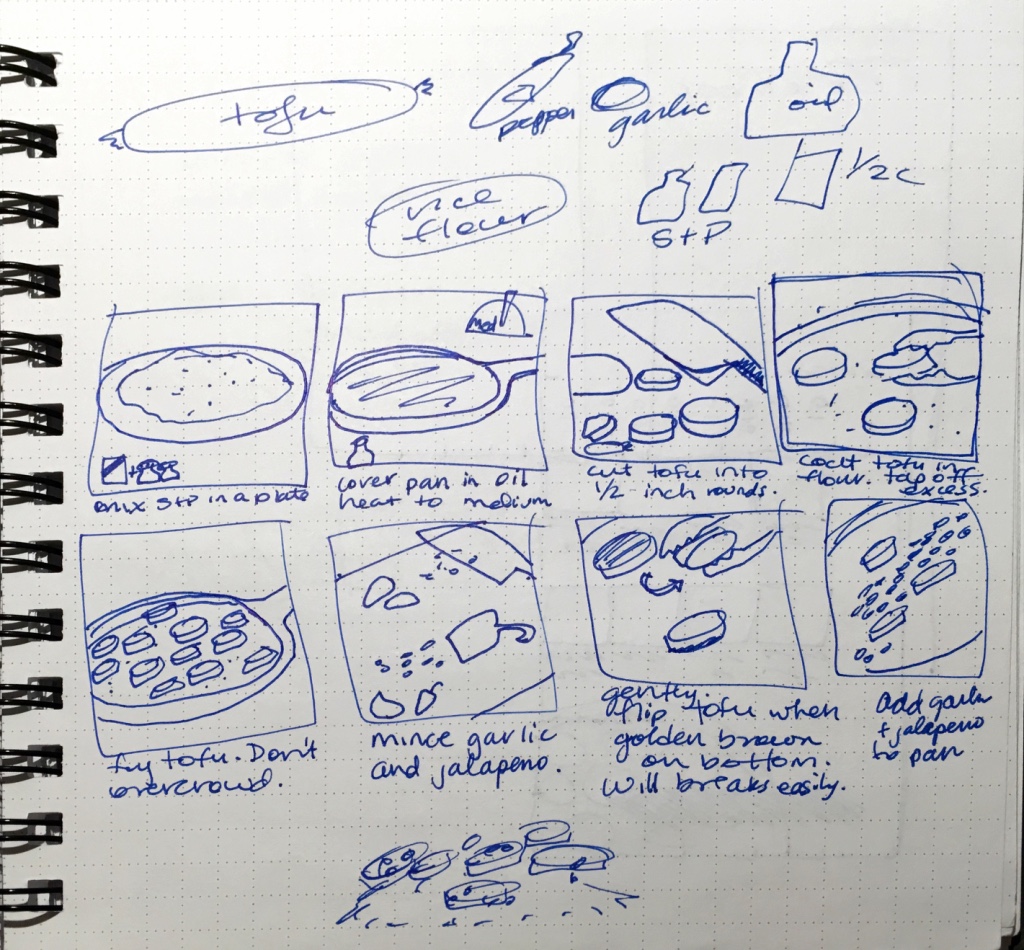 tofu
pepper
garlic
oil
rice
flour
S+P
1/2c
Med
mix S+P in a plate
cover pan in oil
heat to medium
cut tofu into
1/2 inch rounds.
coat tofu in
flour. tap off
excess.
fry tofu. Don't
overcrowd.
mince garlic
and jalapeno.
gently.
flip tofu when
golden brown
on bottom.
will breaks easily.
Add garlic
+ jalapeno
to pan